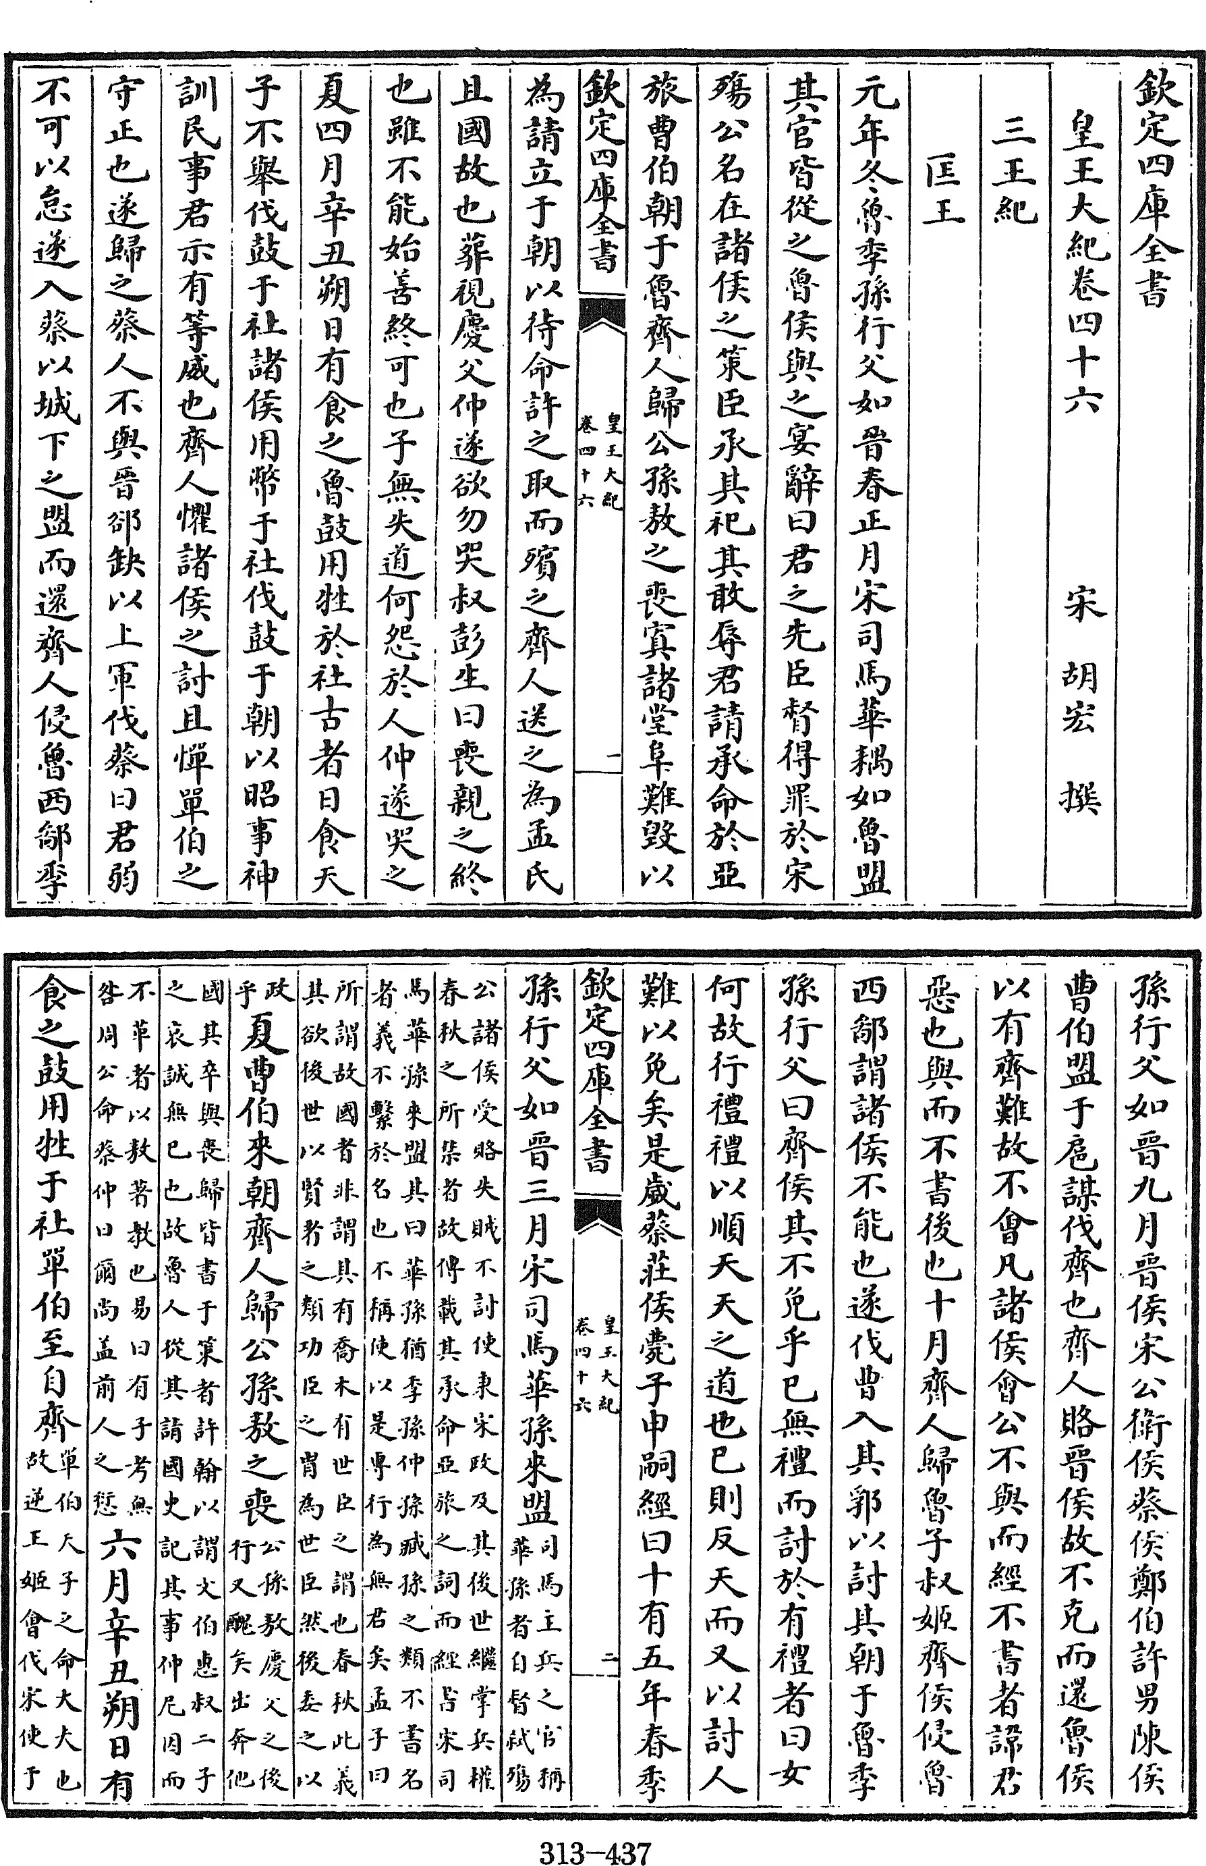 欽定四庫全書
皇王大紀卷四十六 宋 胡宏 撰
三王紀
匡王
元年冬魯季孫行父如晉春正月宋司馬華耦如魯盟
其官皆從之魯侯與之宴辭曰君之先臣督得罪於宋
殤公名在諸侯之策臣承其祀其敢辱君請承命於亞
旅曹伯朝于魯齊人歸公孫敖之喪寘諸堂阜難毀以
欽定四庫全書
皇王大紀
卷四十六
一
為請立于朝以待命許之取而殯之齊人送之為孟氏
且國故也葬視慶父仲遂欲勿哭叔彭生曰喪親之終
也雖不能始善終可也子無失道何怨於人仲遂哭之
夏四月辛丑朔日有食之魯鼓用牲於社古者日食天
子不舉伐鼓于社諸侯用幣于社伐鼓于朝以昭事神
訓民事君示有等威也齊人懼諸侯之討且憚單伯之
守正也遂歸之蔡人不與晉郤缺以上軍伐蔡曰君弱
不可以怠遂入蔡以城下之盟而還齊人侵魯西鄙季
孫行父如晉九月晉侯宋公衛侯蔡侯鄭伯許男陳侯
曹伯盟于扈謀伐齊也齊人賂晉侯故不克而還魯侯
以有齊難故不會凡諸侯會公不與而經不書者諱君
惡也與而不書後也十月齊人歸魯子叔姬齊侯侵魯
西鄙謂諸侯不能也遂伐曹入其郛以討其朝于魯季
孫行父曰齊侯其不免乎已無禮而討於有禮者曰女
何故行禮禮以順天天之道也已則反天而又以討人
難以免矣是歲蔡莊侯薨子申嗣經曰十有五年春季
欽定四庫全書
皇王大紀
卷四十六
二
孫行父如晉三月宋司馬華孫來盟
司馬主兵之官稱
華孫者自督弑殤
公諸侯受賂失賊不討使東宋政及其後世繼掌兵權
春秋之所集者故傳載其承命亞旅之詞而經書宋司
馬華孫來盟其曰華孫猶季孫仲孫臧孫之類不書名
者義不繫於名也不稱使以是專行為無君矣孟子曰
所謂故國者非謂其有喬木有世臣之謂也春秋此義
其欲後世以賢者之類功臣之胄為世臣然後委之以
政
乎
夏曹伯來朝齊人歸公孫敖之喪
公孫敖慶父之後
行又醜矣出奔他
國其卒與喪歸皆書于策者許翰以謂文伯惠叔二子
之哀誠無已也故魯人從其請國史記其事仲尼因而
不革者以敖著教也易曰有子考無
咎周公命蔡仲曰爾尚盖前人之愆
六月辛丑朔日有
食之鼓用牲于社單伯至自齊
單伯天子之命大夫也
故逆王姬會伐宋使于
313-437